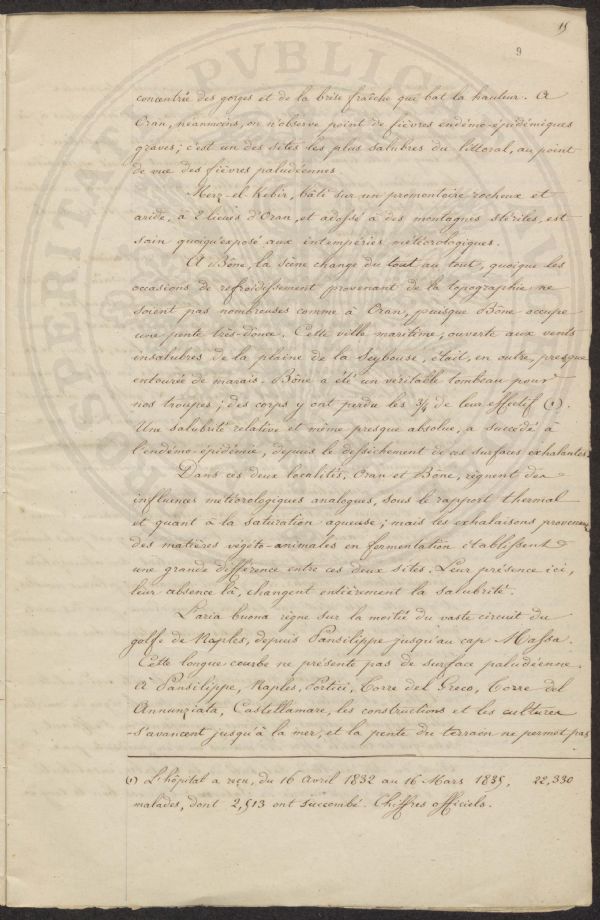 15
9
concentrée des gorges et de la brise fraîche qui bat la hauteur. A
Oran, néanmoins, on n'observe point de fièvres endémo-épidémiques
graves; c'est un des sites les plus salubres du littoral, au point
de vue des fièvres paludéennes
Merz-el-Kebir, bâti sur un promontoire rocheux et
aride, à 2 lieues d'Oran, et adossé à des montagnes stériles, est
sain quoiqu'exposé aux intempéries météorologiques.
A Bône, la scène change du tout au tout, quoique les
occasions de refroidissement provenant de la topographie ne
soient pas nombreuses comme à Oran, puisque Bône occupe
une pente très-douce. Cette ville maritime, ouverte aux vents
insalubres de la plaine de la Seybouse, était, en outre, presque
entourée de marais. Bône a été un véritable tombeau pour
nos troupes; des corps y ont perdu les 3/4 de leur effectif (1).
Une salubrité relative et même presque absolue, a succédé à
l'endémo-épidémie, depuis le dessèchement de ces surfaces exhalantes.
Dans ces deux localités, Oran et Bône, règnent des
influences météorologiques analogues, sous le rapport thermal
et quant à la saturation aqueuse; mais les exhalaisons provenant
des matières végéto-animales en fermentation établissent
une grande différence entre ces deux sites. Leur présence ici,
leur absence là, changent entièrement la salubrité.
L'aria buona règne sur la moitié du vaste circuit du
golfe de Naples, depuis Pausilippe jusqu'au cap Massa.
Cette longue courbe ne présente pas de surface paludéenne.
A Pausilippe, Naples, Portici, Torre del Greco, Torre del
Annunziata, Castellamare, les constructions et les cultures
s'avancent jusqu'à la mer, et la pente du terrain ne permet pas
(1) L'hôpital a reçu, du 16 Avril 1832 au 16 Mars 1835, 22,330
malades, dont 2,513 ont succombé. Chiffres officiels.